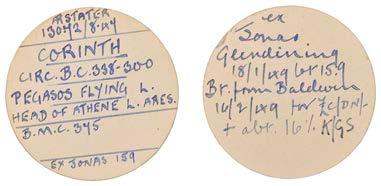 AR STATER
CORINTH
CIRC. B.C. 338-300
PEGASOS FLYING L.
HEAD OF ATHENE L. ARES.
B.M.C. 345
EX JONAS 159
ex
Jonas
Glendining
18/1/49 lot 159
Bt. from Baldwin
14/2/49 for
+ abt. 16% K/GS